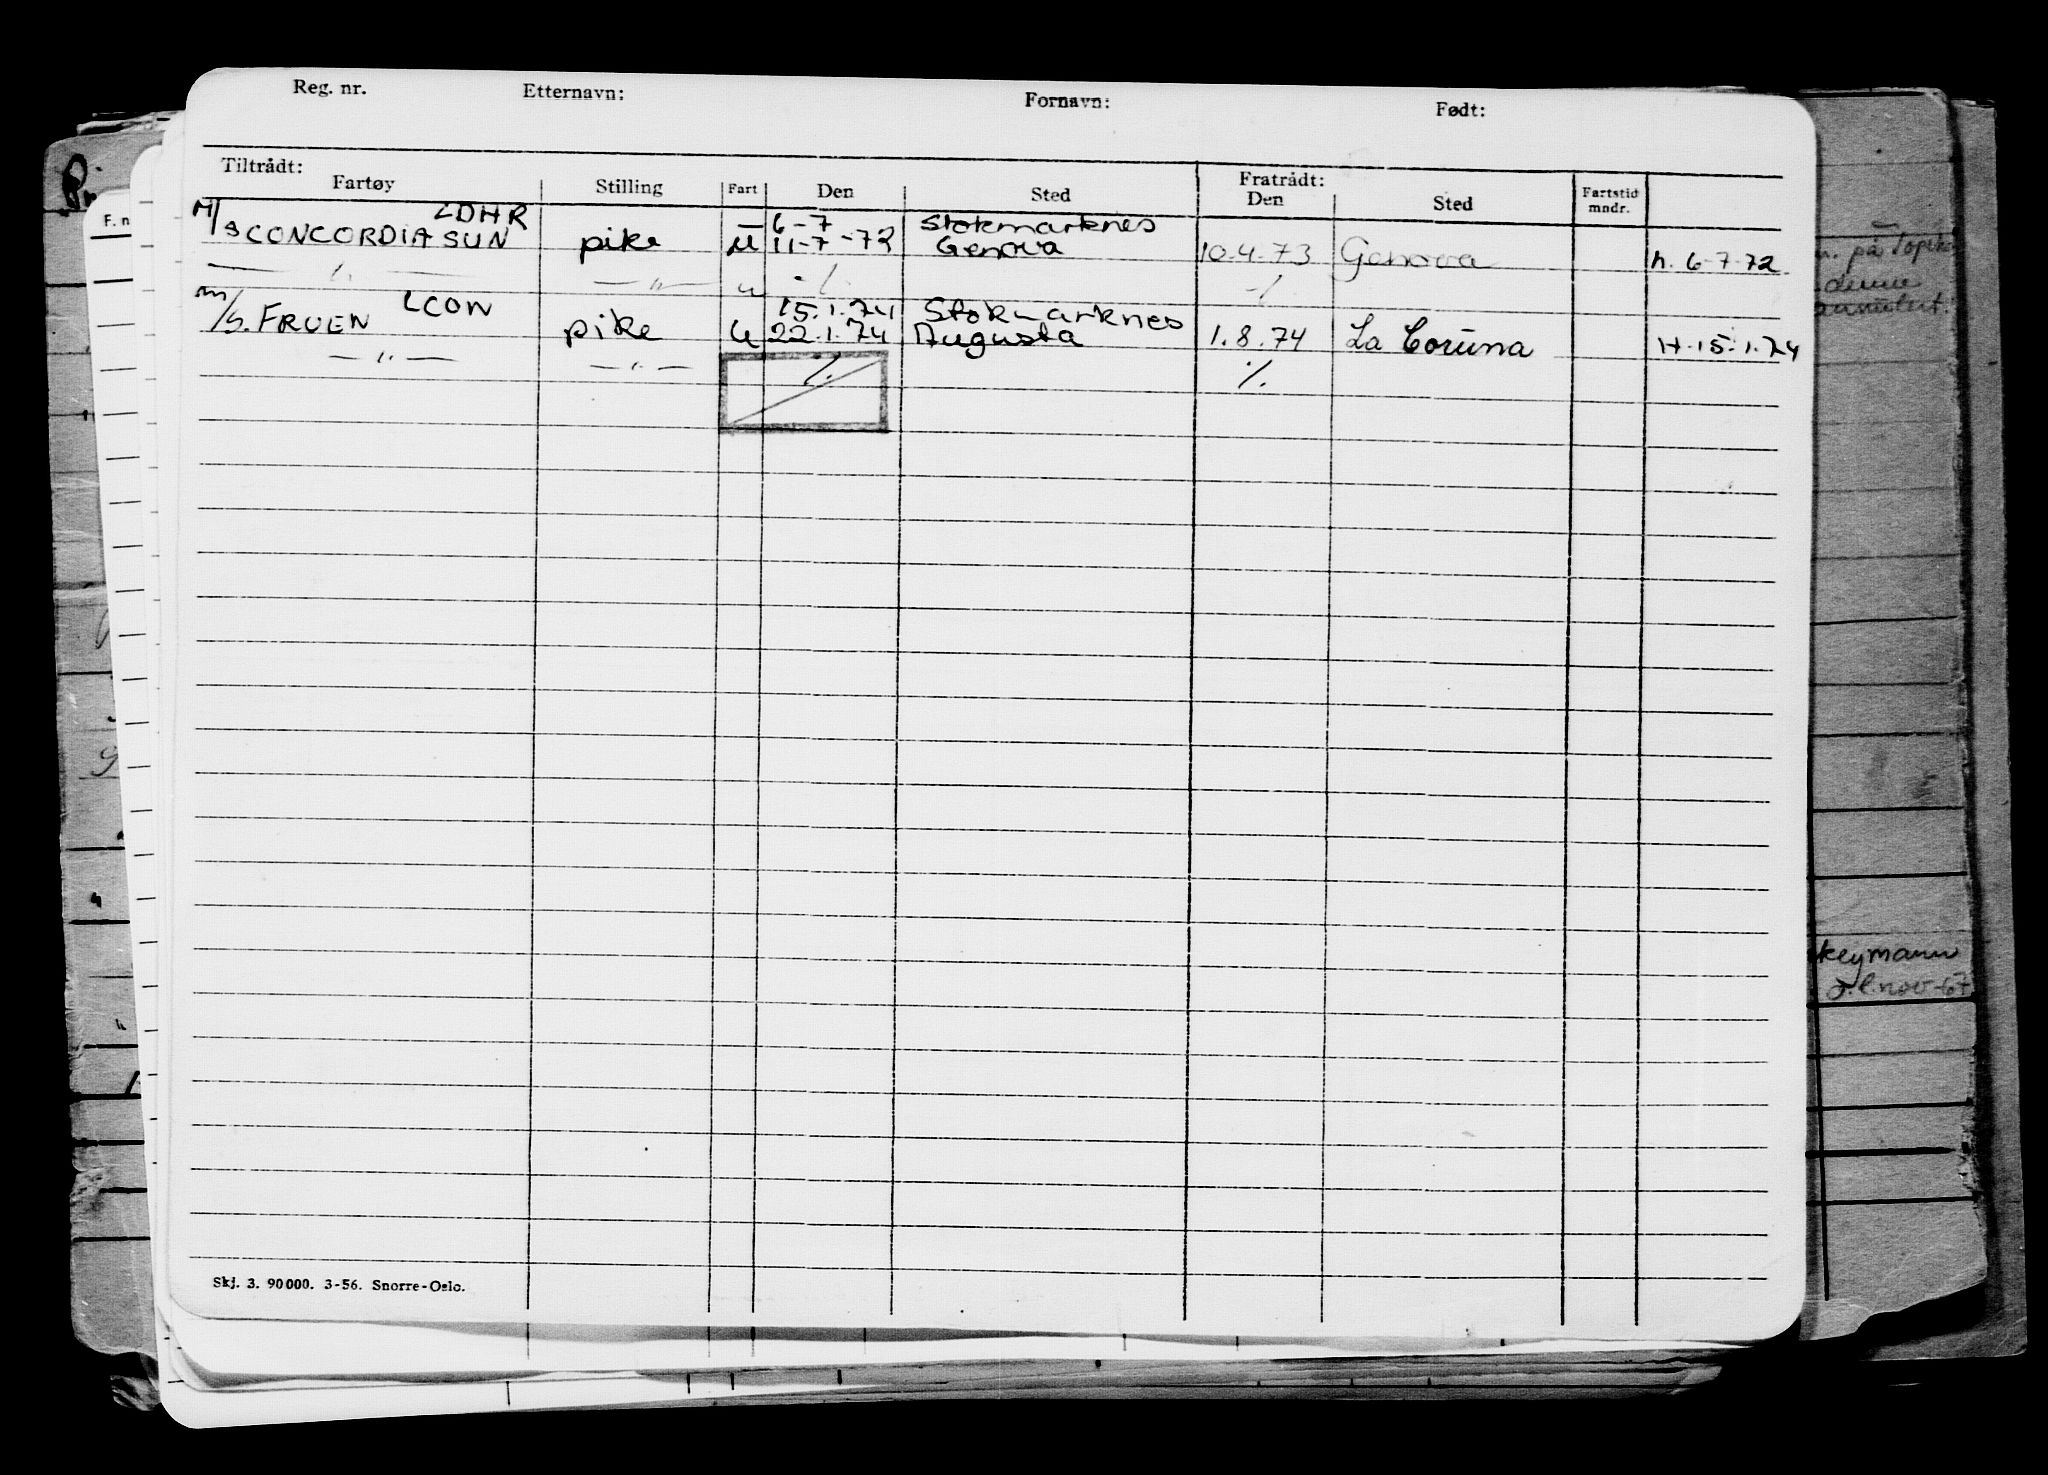 Reg. nr. Etternavn: Fornavn: Født:
Tiltrådt: Fratrådt:
Fartøy Stilling Fart Den Sted Den Sted Fartstid mndr.
LDHR 6-7 Stokmarknes
M/S CONCORDIA SUN pike u 11-7-72 Genova 10.4.73 Genova h. 6-7-72
— " — — " — u ·/. ·/.
LCON 15.1.74 Stokmarknes
m/s. FRUEN pike u 22.1.74 Augusta 1.8.74 La Coruna H. 15.1.74
— " — — " — ·/. ·/.
Skj. 3. 90000. 3-56. Snorre-Oslo.
F. n
på
denne
annulert.
keymann
nov-67